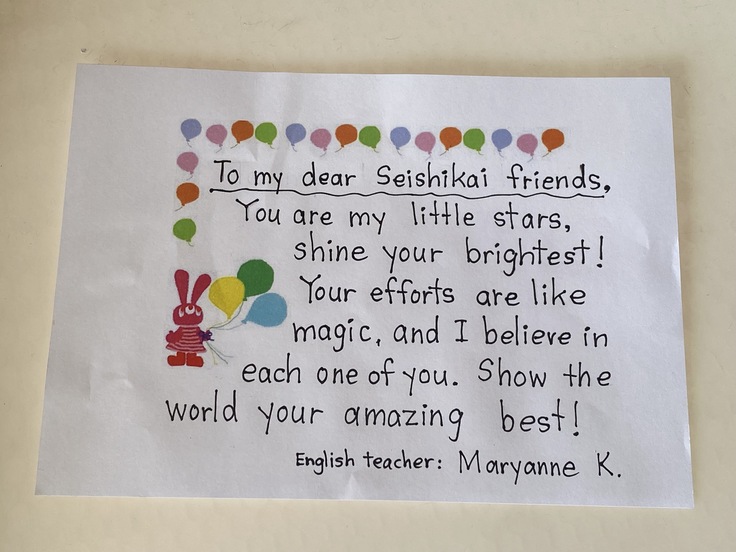 To my dear Seishikai friends,
You are my little stars,
shine your brightest!
Your efforts are like
magic, and I believe in
each one of you. Show the
world your amazing best!
English teacher: Maryanne K.